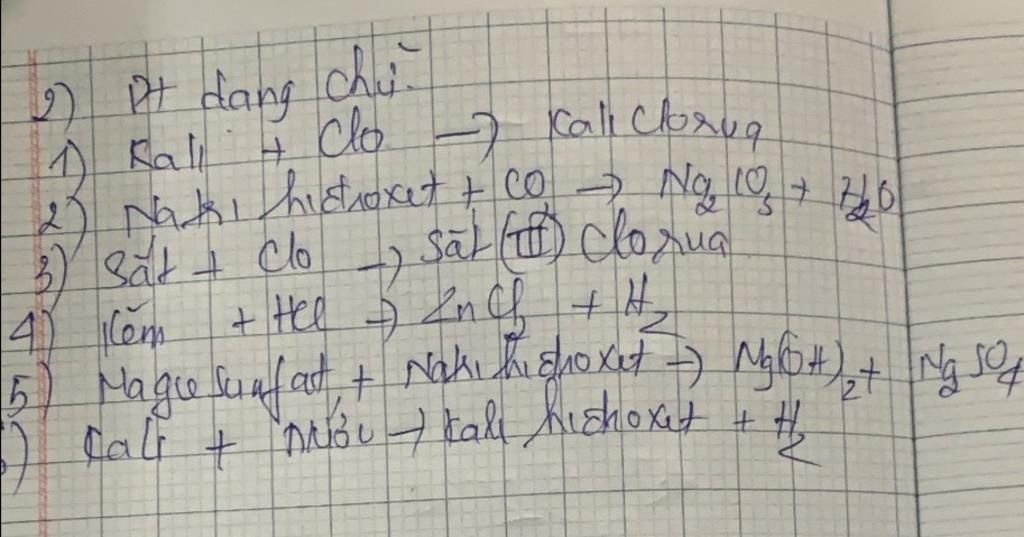 2) Pt dạng chữ.
1) Kali + Clo → Kali Clorua
2) Natri hiđroxit + CO₂ → Na₂CO₃ + H₂O
3) Sắt + Clo → Sắt (III) Clorua
4) Kẽm + HCl → ZnCl₂ + H₂
5) Magie sunfat + Natri hiđroxit → Mg(OH)₂ + Na₂SO₄
) Kali + nước → kali hiđroxit + H₂